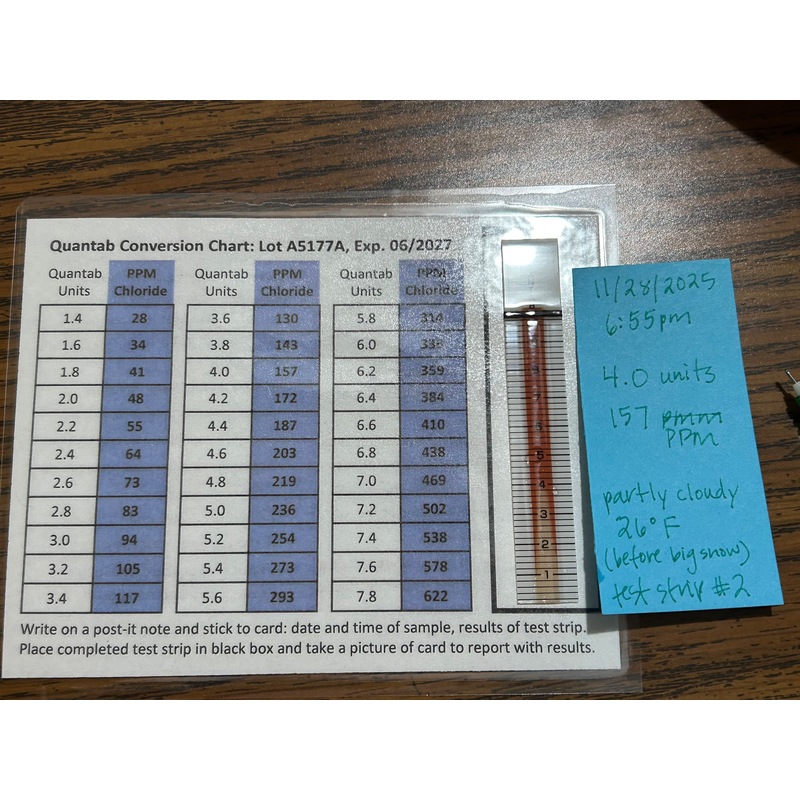 Quantab Conversion Chart: Lot A5177A, Exp. 06/2027
Quantab Units PPM Chloride Quantab Units PPM Chloride Quantab Units PPM Chloride
1.4 28 3.6 130 5.8 314
1.6 34 3.8 143 6.0 336
1.8 41 4.0 157 6.2 359
2.0 48 4.2 172 6.4 384
2.2 55 4.4 187 6.6 410
2.4 64 4.6 203 6.8 438
2.6 73 4.8 219 7.0 469
2.8 83 5.0 236 7.2 502
3.0 94 5.2 254 7.4 538
3.2 105 5.4 273 7.6 578
3.4 117 5.6 293 7.8 622
Write on a post-it note and stick to card: date and time of sample, results of test strip.
Place completed test strip in black box and take a picture of card to report with results.
8
7
6
5
4
3
2
1
11/28/2025
6:55pm
4.0 units
157
PPM
partly cloudy
26° F
(before big snow)
test strip #2